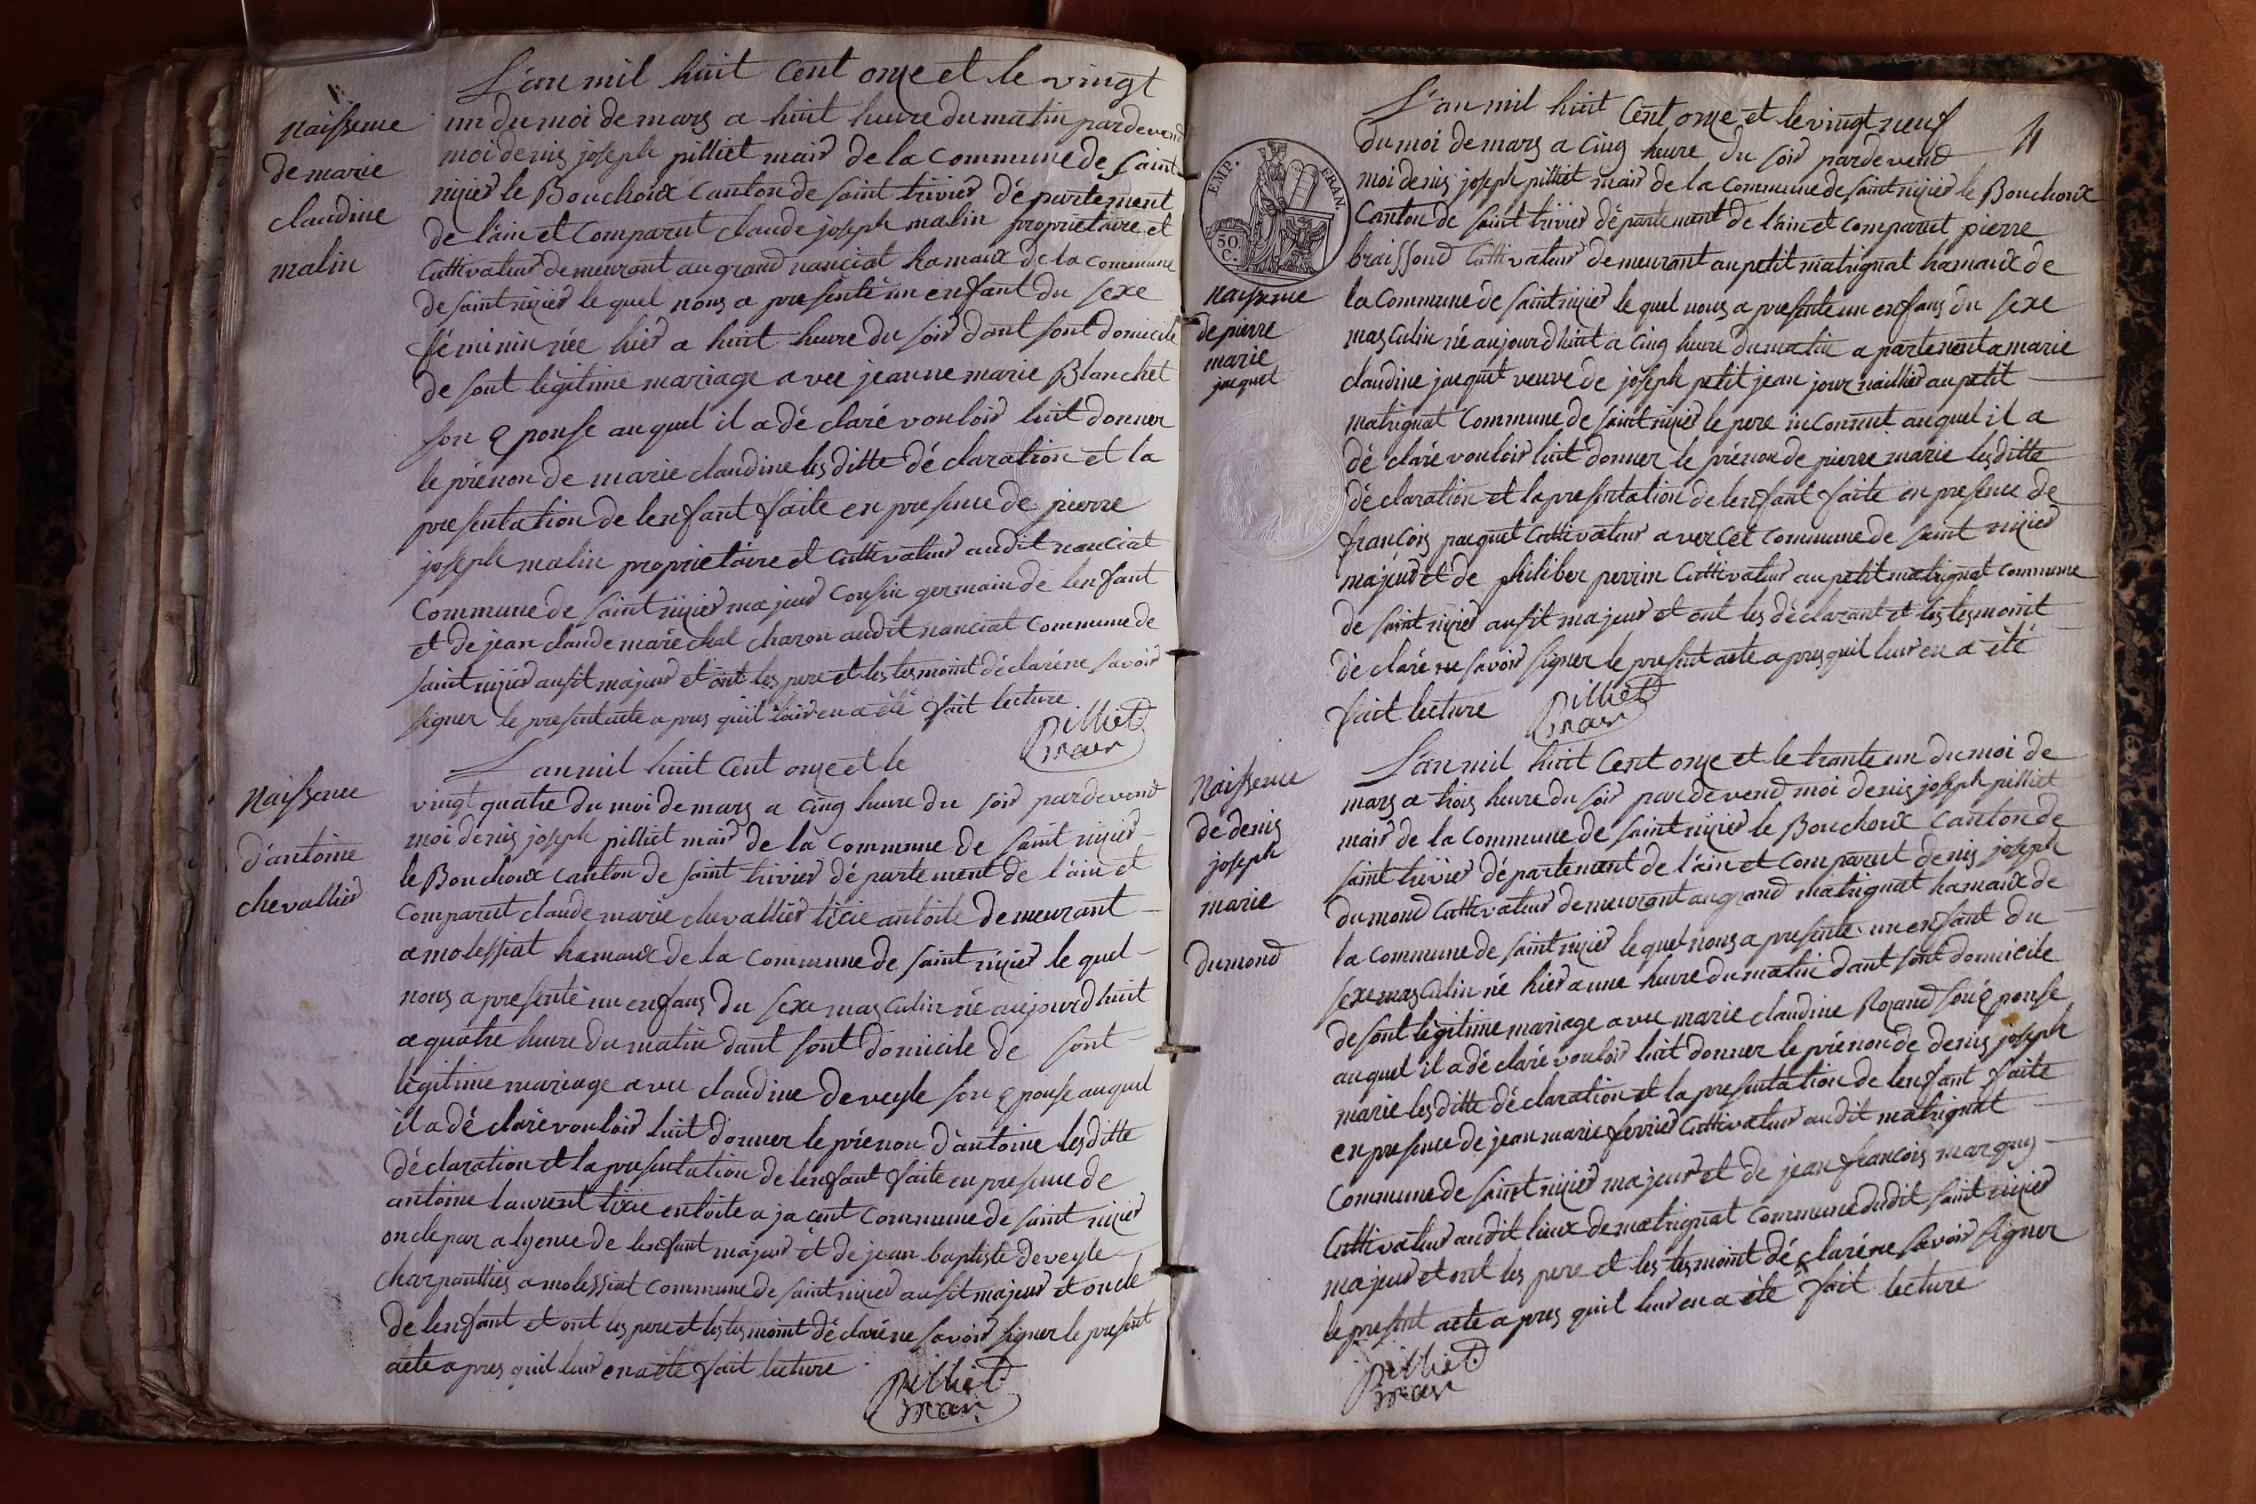 L'an mil huit cent onze et le vingt
Naissence
de marie
claudine
malin
un du moi de mars a huit heure du matin pardevend
moi denis joseph pilliet mair de la commune de saint
nizier le Bouchoux canton de saint trivier département
de l'ain et comparut claude joseph malin proprietaire et
cultivateur demeurant au grand nanciat hamaux de la commune
de saint nizier le quel nous a presenté un enfant du sexe
féminin née hier a huit heure du soir dant sont domicile
de sont légitime mariage avec jeanne marie Blanchet
son Epouse auquel il a déclaré vouloir luit donner
le prénon de marie claudine lesditte déclaration et la
presentation de lenfant faite en presence de pierre
joseph malin proprietaire et cultivateur audit nanciat
commune de saint nizier majeur cousin germain de lenfant
et de jean claude maréchal charon audit nanciat commune de
saint nizier ausit majeur et ont les pere et les tesmoint déclaré ne savoir
signer le present acte apres quil leur en a été fait lecture
Pilliet
mair
L'an mil huit cent onze et le
Naissence
d'antoine
chevallier
vingt quatre du moi de mars a cinq heure du soir pardevend
moi denis joseph pilliet mair de la commune de saint nizier
le Bouchoux canton de saint trivier département de l'ain et
comparut claude marie chevallier ticié antoile demeurant
a molessiat hamaux de la commune de saint nizier le quel
nous a presenté un enfans du sexe masculin né aujourdhuit
a quatre heure du matin dant sont domicile de sont
légitime mariage avec claudine deveyle son Epouse auquel
il a déclaré vouloir luit donner le prénon d'antoine lesditte
déclaration et la presentation de lenfant faite en presence de
antoine laurent tixié entoite a jacent commune de saint nizier
oncle par alyence de lenfant majeur et de jean baptiste deveyle
charpanttiés a molessiat commune de saint nizier ausit majeur et oncle
de lenfant et ont les pere et les tesmoint déclaré ne savoir signer le present
acte apres quil leur en a été fait lecture
Pilliet
mair
11
EMP. FRAN.
50
C.
L'an mil huit cent onze et le vingt neuf
du moi de mars a cinq heure du soir pardevend
moi denis joseph pilliet mair de la commune de saint nizier le Bouchoux
canton de saint trivier département de l'ain et comparut pierre
braissoud cultivateur demeurant au petit matrignat hamaux de
Naissence
de pierre
marie
jacquet
la commune de saint nizier le quel nous a presenté un enfans du sexe
masculin né aujourdhuit a cinq heure du matin apartenent a marie
claudine jacquet veuve de joseph petit jean journaillier au petit
matrignat commune de saint nizier le pere inconnut auquel il a
déclaré vouloir luit donner le prénon de pierre marie lesditte
déclaration et la presentation de lenfant faite en presence de
françois pacquet cultivateur a vercet commune de saint nizier
majeur et de philiber perrin cultivateur au petit matrignat commune
de saint nizier ausit majeur et ont les déclarant et les tesmoint
déclaré ne savoir signer le present acte apres quil leur en a été
fait lecture
Pilliet
mair
L'an mil huit cent onze et le trante un du moi de
Naissence
de denis
joseph
marie
dumond
mars a trois heure du soir pardevend moi denis joseph pilliet
mair de la commune de saint nizier le Bouchoux canton de
saint trivier département de l'ain et comparut denis joseph
dumond cultivateur demeurant au grand matrignat hamaux de
la commune de saint nizier le quel nous a presenté un enfant du
sexe masculin né hier a une heure du matin dant sont domicile
de sont légitime mariage avec marie claudine Rozand son Epouse
auquel il a déclaré vouloir luit donner le prénon de denis joseph
marie lesditte déclaration et la presentation de lenfant faite
en presence de jean marie ferrier cultivateur audit matrignat
commune de saint nizier majeur et de jean françois marquis
cultivateur audit lieux de matrignat commune dudit saint nizier
majeur et ont les pere et les tesmoint déclaré ne savoir signer
le present acte apres quil leur en a été fait lecture
Pilliet
mair